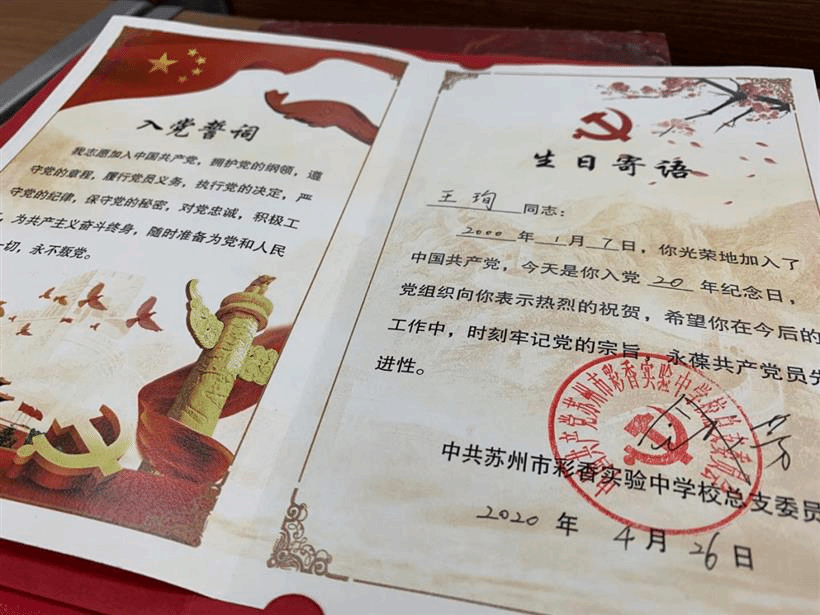 入党誓词
我志愿加入中国共产党，拥护党的纲领，遵
守党的章程，履行党员义务，执行党的决定，严
守党的纪律，保守党的秘密，对党忠诚，积极工
，为共产主义奋斗终身，随时准备为党和人民
一切，永不叛党。
生日寄语
王珣同志：
2000年1月7日，你光荣地加入了
中国共产党，今天是你入党20年纪念日，
党组织向你表示热烈的祝贺，希望你在今后的
工作中，时刻牢记党的宗旨，永葆共产党员先
进性。
中国共产党苏州市彩香实验中学校总支委员会
中共苏州市彩香实验中学校总支委员
2020年4月26日